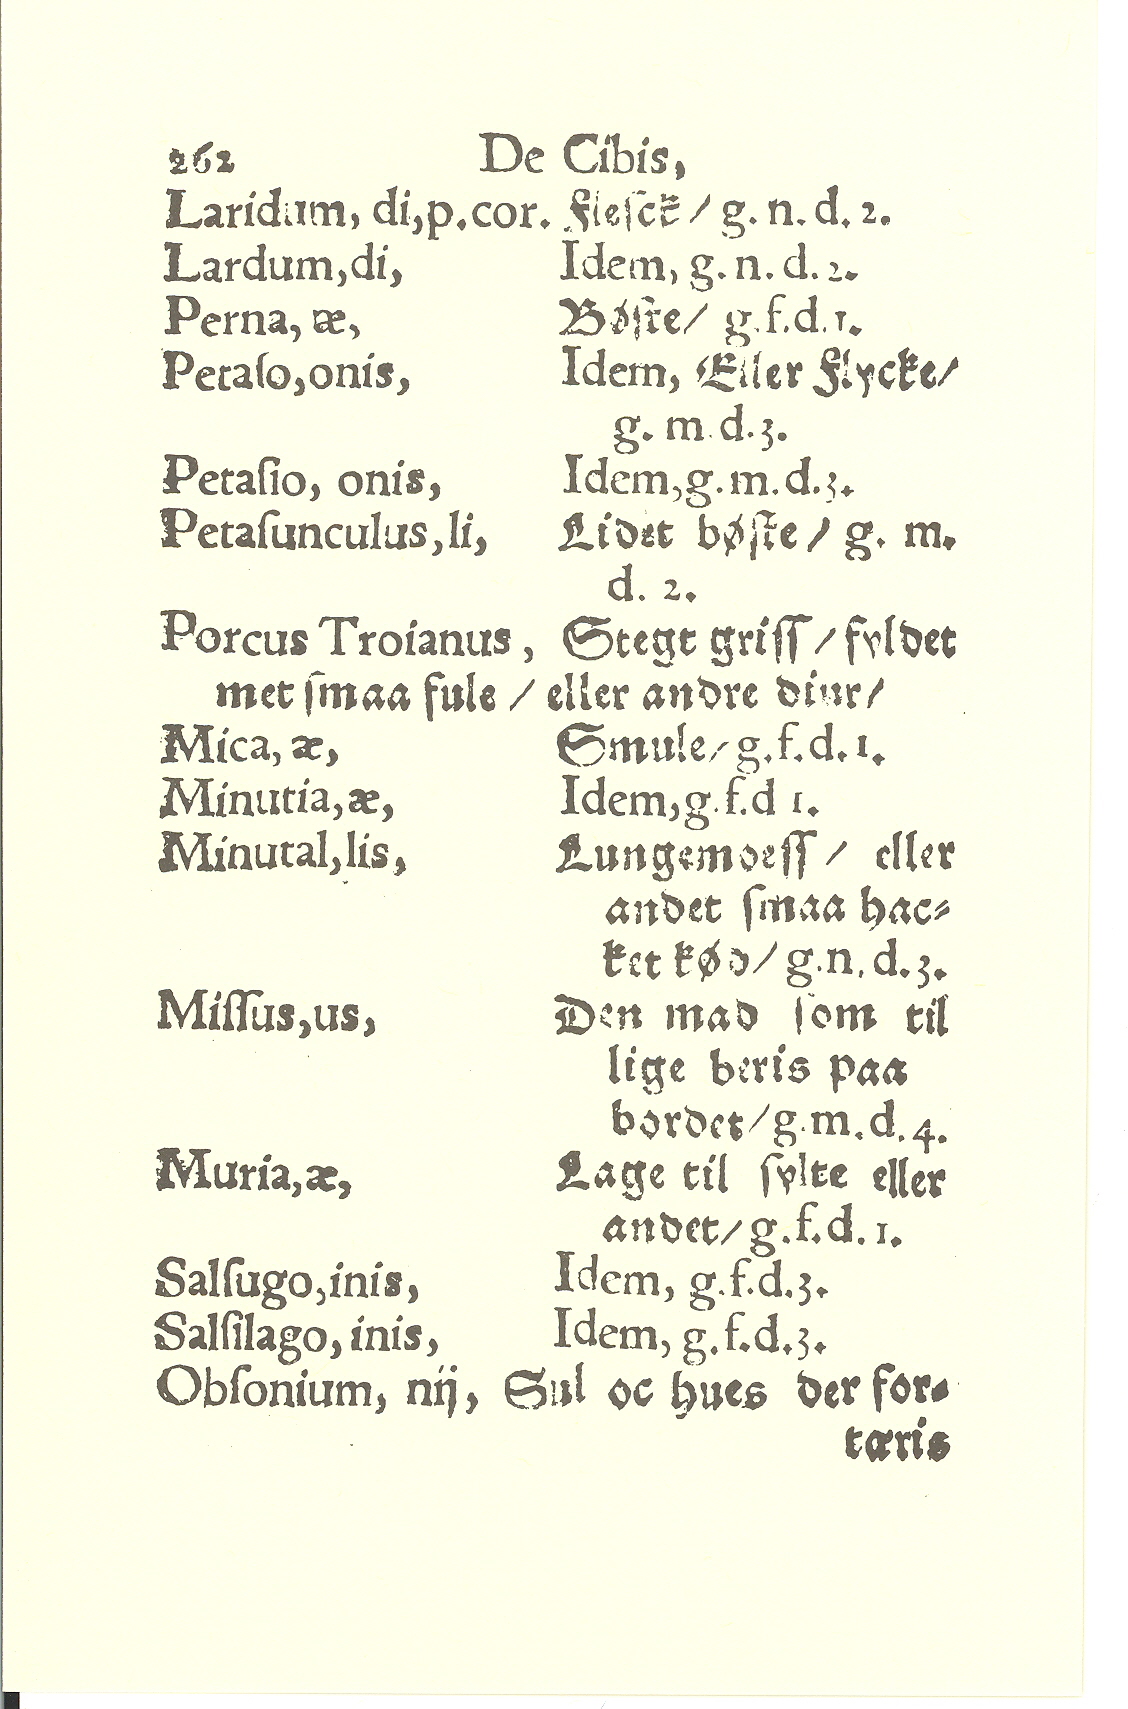 262 De Cibis,
Laridum, di,p.cor. Flesck / g. n. d. 2.
Lardum,di, Idem, g. n. d. 2.
Perna, æ, Bøste/ g.f.d.1.
Petaſo,onis, Idem, Eller Flycke/
g. m.d.3.
Petaſio, onis, Idem,g.m.d.3.
Petaſunculus,li, Lidet bøſte / g. m.
d. 2.
Porcus Troianus, Stegt griſſ / fyldet
met ſmaa fule / eller andre diur/
Mica, æ, Smule/ g.f.d.1.
Minutia,æ, Idem,g.f.d 1.
Minutal,lis, Lungemoeſſ / eller
andet ſmaa hac⸗
ket kød/ g.n.d.3.
Miſſus,us, Den mad ſom til
lige beris paa
bordet/g.m.d.4.
Muria,æ, Lage til ſylte eller
andet/g.f.d.1.
Salſugo,inis, Idem, g.f.d.3.
Salſilago, inis, Idem, g.f.d.3.
Obſonium, nij, Sul oc hues der for⸗
tæris